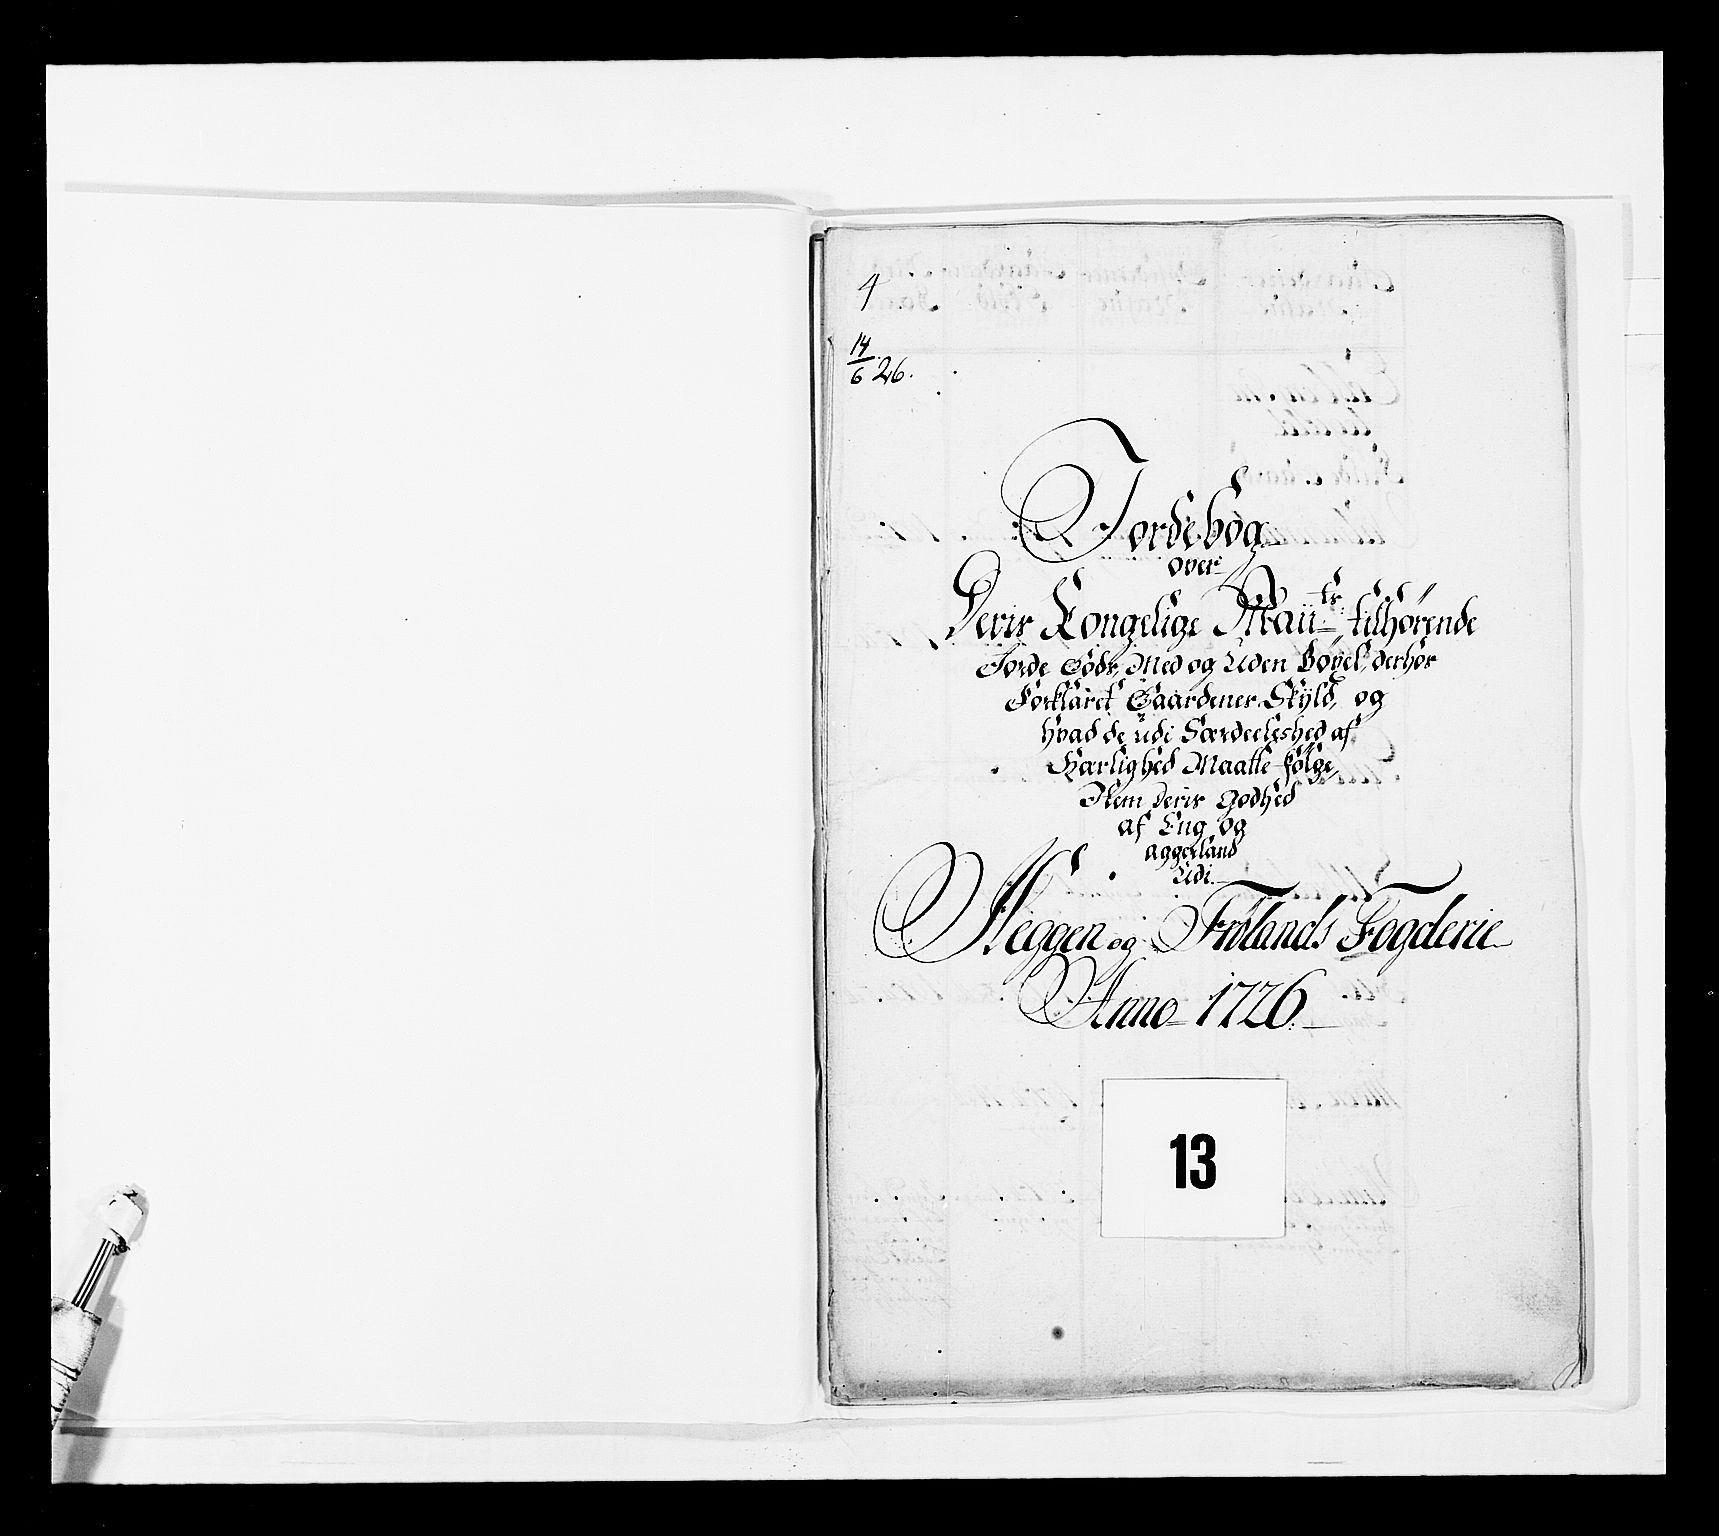 4
14/6 26.
Jordebog
over
Deris Kongelige Maiits: tilhørende
Jorde Godts, Med og Uden Bøxel, derhos
Forklaret Gaardenes Skyld, og
hvad de udi Særdeeleshed af
Herlighed Maatte følge,
Item deris Godhed
af Eng og
aggerland
Udi
Heggen og Frølands Fogderie
Anno 1726.
13